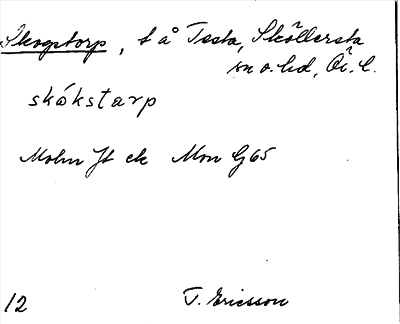 Skogstorp, t å Testa, Sköllersta
sn o. hd, Ör. l.
skókstarp
Mohn Jt ek Mon G65
12 T. Ericsson